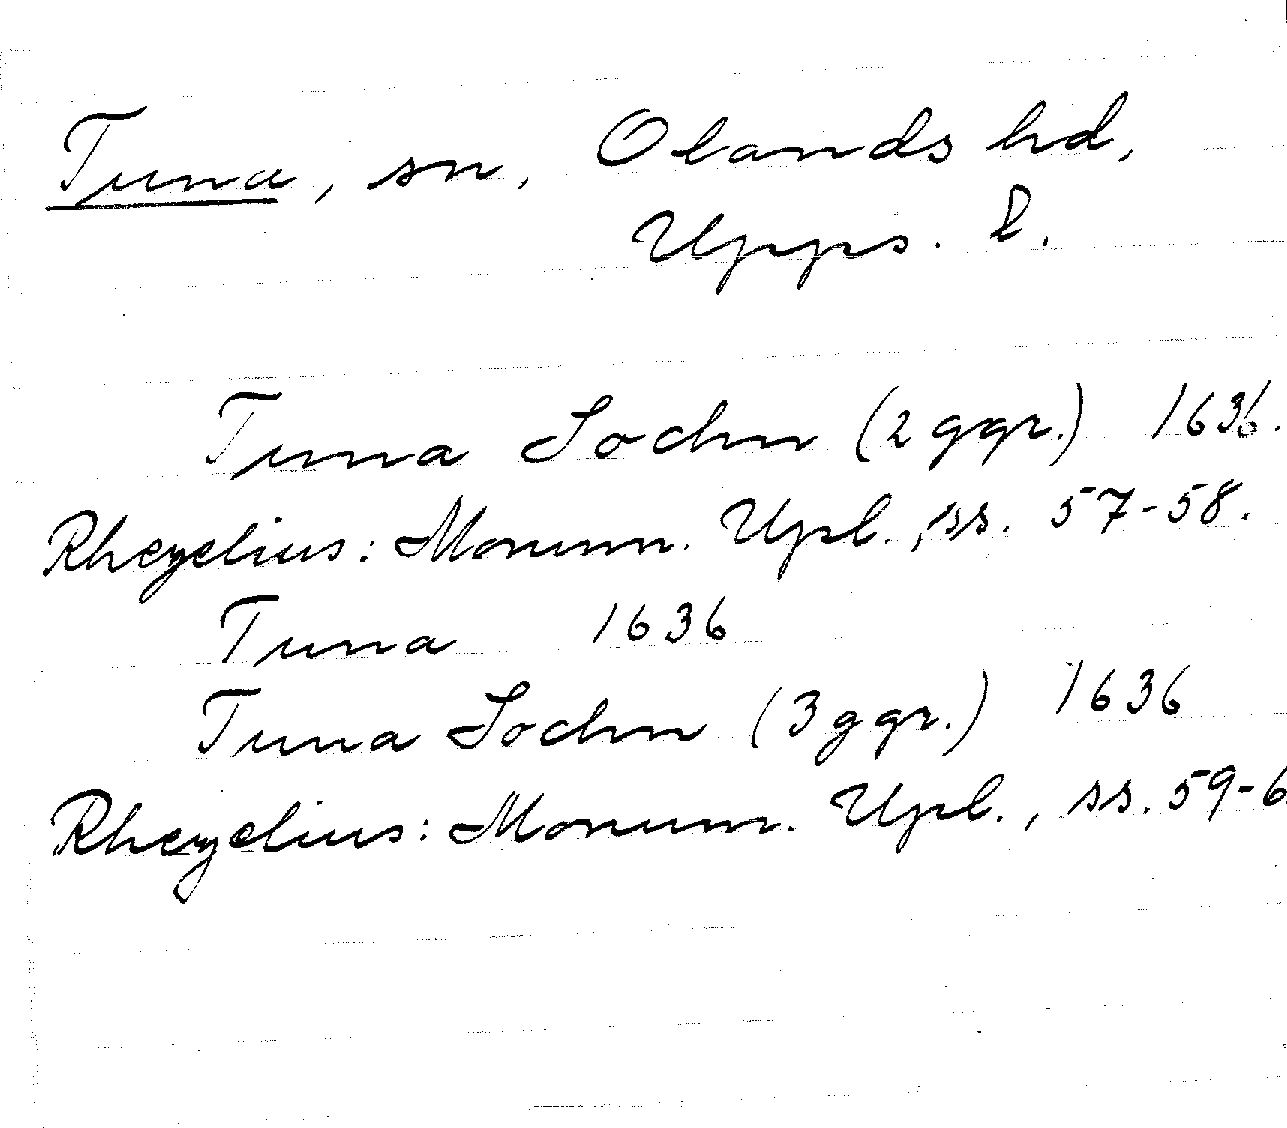 Tuna, sn, Olands hd,
Upps. l.
Tuna Sochn (2 ggr.) 1636.
Rhezelius: Monum. Upl., ss. 57-58.
Tuna 1636
Tuna Sochn (3 ggr.) 1636
Rhezelius: Monum. Upl., ss. 59-6